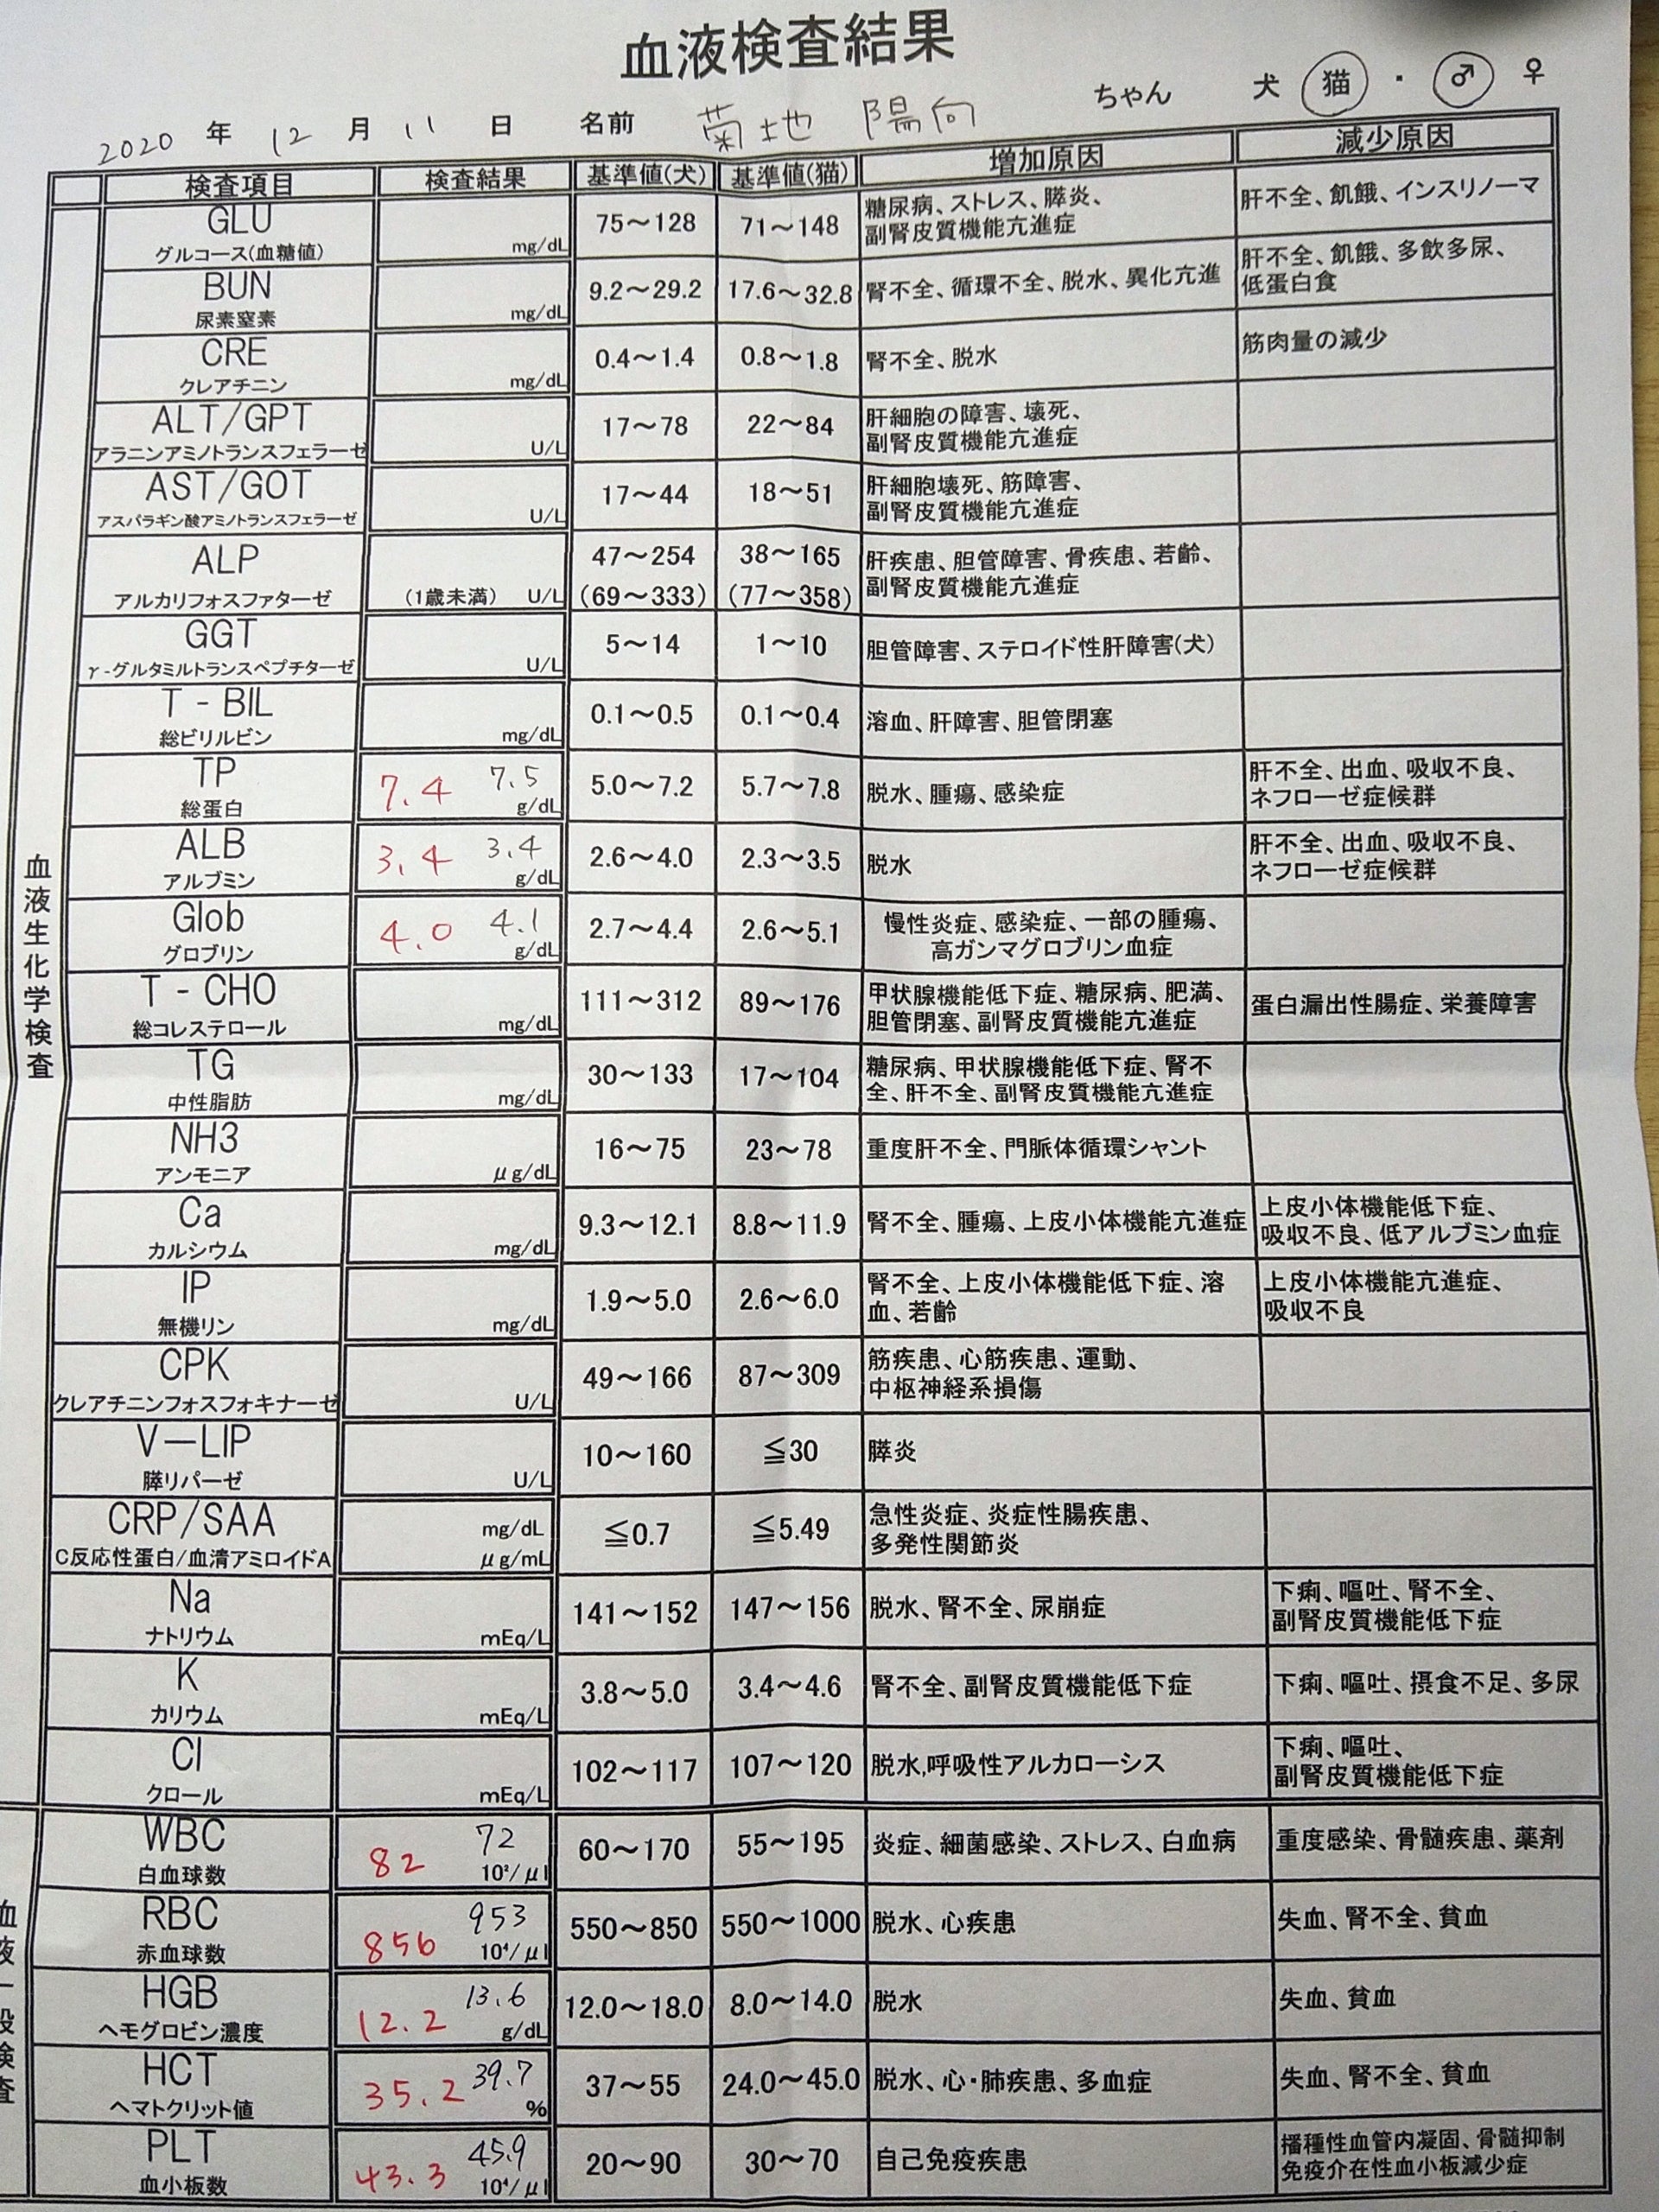 血液検査結果
2020 年 12 月 11 日 名前 菊地 陽向 ちゃん 犬 猫 ・ ♂ ♀
検査項目 検査結果 基準値(犬) 基準値(猫) 増加原因 減少原因
血液生化学検査
GLU
グルコース(血糖値) mg/dL 75～128 71～148 糖尿病、ストレス、膵炎、
副腎皮質機能亢進症 肝不全、飢餓、インスリノーマ
BUN
尿素窒素 mg/dL 9.2～29.2 17.6～32.8 腎不全、循環不全、脱水、異化亢進 肝不全、飢餓、多飲多尿、
低蛋白食
CRE
クレアチニン mg/dL 0.4～1.4 0.8～1.8 腎不全、脱水 筋肉量の減少
ALT/GPT
アラニンアミノトランスフェラーゼ U/L 17～78 22～84 肝細胞の障害、壊死、
副腎皮質機能亢進症
AST/GOT
アスパラギン酸アミノトランスフェラーゼ U/L 17～44 18～51 肝細胞壊死、筋障害、
副腎皮質機能亢進症
ALP 47～254 38～165 肝疾患、胆管障害、骨疾患、若齢、
アルカリフォスファターゼ (1歳未満) U/L (69～333) (77～358) 副腎皮質機能亢進症
GGT
γ-グルタミルトランスペプチターゼ U/L 5～14 1～10 胆管障害、ステロイド性肝障害(犬)
T - BIL
総ビリルビン mg/dL 0.1～0.5 0.1～0.4 溶血、肝障害、胆管閉塞
TP
総蛋白 7.4 7.5 g/dL 5.0～7.2 5.7～7.8 脱水、腫瘍、感染症 肝不全、出血、吸収不良、
ネフローゼ症候群
ALB
アルブミン 3.4 3.4 g/dL 2.6～4.0 2.3～3.5 脱水 肝不全、出血、吸収不良、
ネフローゼ症候群
Glob
グロブリン 4.0 4.1 g/dL 2.7～4.4 2.6～5.1 慢性炎症、感染症、一部の腫瘍、
高ガンマグロブリン血症
T - CHO
総コレステロール mg/dL 111～312 89～176 甲状腺機能低下症、糖尿病、肥満、
胆管閉塞、副腎皮質機能亢進症 蛋白漏出性腸症、栄養障害
TG
中性脂肪 mg/dL 30～133 17～104 糖尿病、甲状腺機能低下症、腎不
全、肝不全、副腎皮質機能亢進症
NH3
アンモニア μg/dL 16～75 23～78 重度肝不全、門脈体循環シャント
Ca
カルシウム mg/dL 9.3～12.1 8.8～11.9 腎不全、腫瘍、上皮小体機能亢進症 上皮小体機能低下症、
吸収不良、低アルブミン血症
IP
無機リン mg/dL 1.9～5.0 2.6～6.0 腎不全、上皮小体機能低下症、溶
血、若齢 上皮小体機能亢進症、
吸収不良
CPK
クレアチニンフォスフォキナーゼ U/L 49～166 87～309 筋疾患、心筋疾患、運動、
中枢神経系損傷
V－LIP
膵リパーゼ U/L 10～160 ≦30 膵炎
CRP/SAA mg/dL
C反応性蛋白/血清アミロイドA μg/mL ≦0.7 ≦5.49 急性炎症、炎症性腸疾患、
多発性関節炎
Na
ナトリウム mEq/L 141～152 147～156 脱水、腎不全、尿崩症 下痢、嘔吐、腎不全、
副腎皮質機能低下症
K
カリウム mEq/L 3.8～5.0 3.4～4.6 腎不全、副腎皮質機能低下症 下痢、嘔吐、摂食不足、多尿
Cl
クロール mEq/L 102～117 107～120 脱水,呼吸性アルカローシス 下痢、嘔吐、
副腎皮質機能低下症
血液一般検査
WBC
白血球数 82 72 10²/μl 60～170 55～195 炎症、細菌感染、ストレス、白血病 重度感染、骨髄疾患、薬剤
RBC
赤血球数 856 953 10⁴/μl 550～850 550～1000 脱水、心疾患 失血、腎不全、貧血
HGB
ヘモグロビン濃度 12.2 13.6 g/dL 12.0～18.0 8.0～14.0 脱水 失血、貧血
HCT
ヘマトクリット値 35.2 39.7 % 37～55 24.0～45.0 脱水、心・肺疾患、多血症 失血、腎不全、貧血
PLT
血小板数 43.3 45.9 10⁴/μl 20～90 30～70 自己免疫疾患 播種性血管内凝固、骨髄抑制
免疫介在性血小板減少症